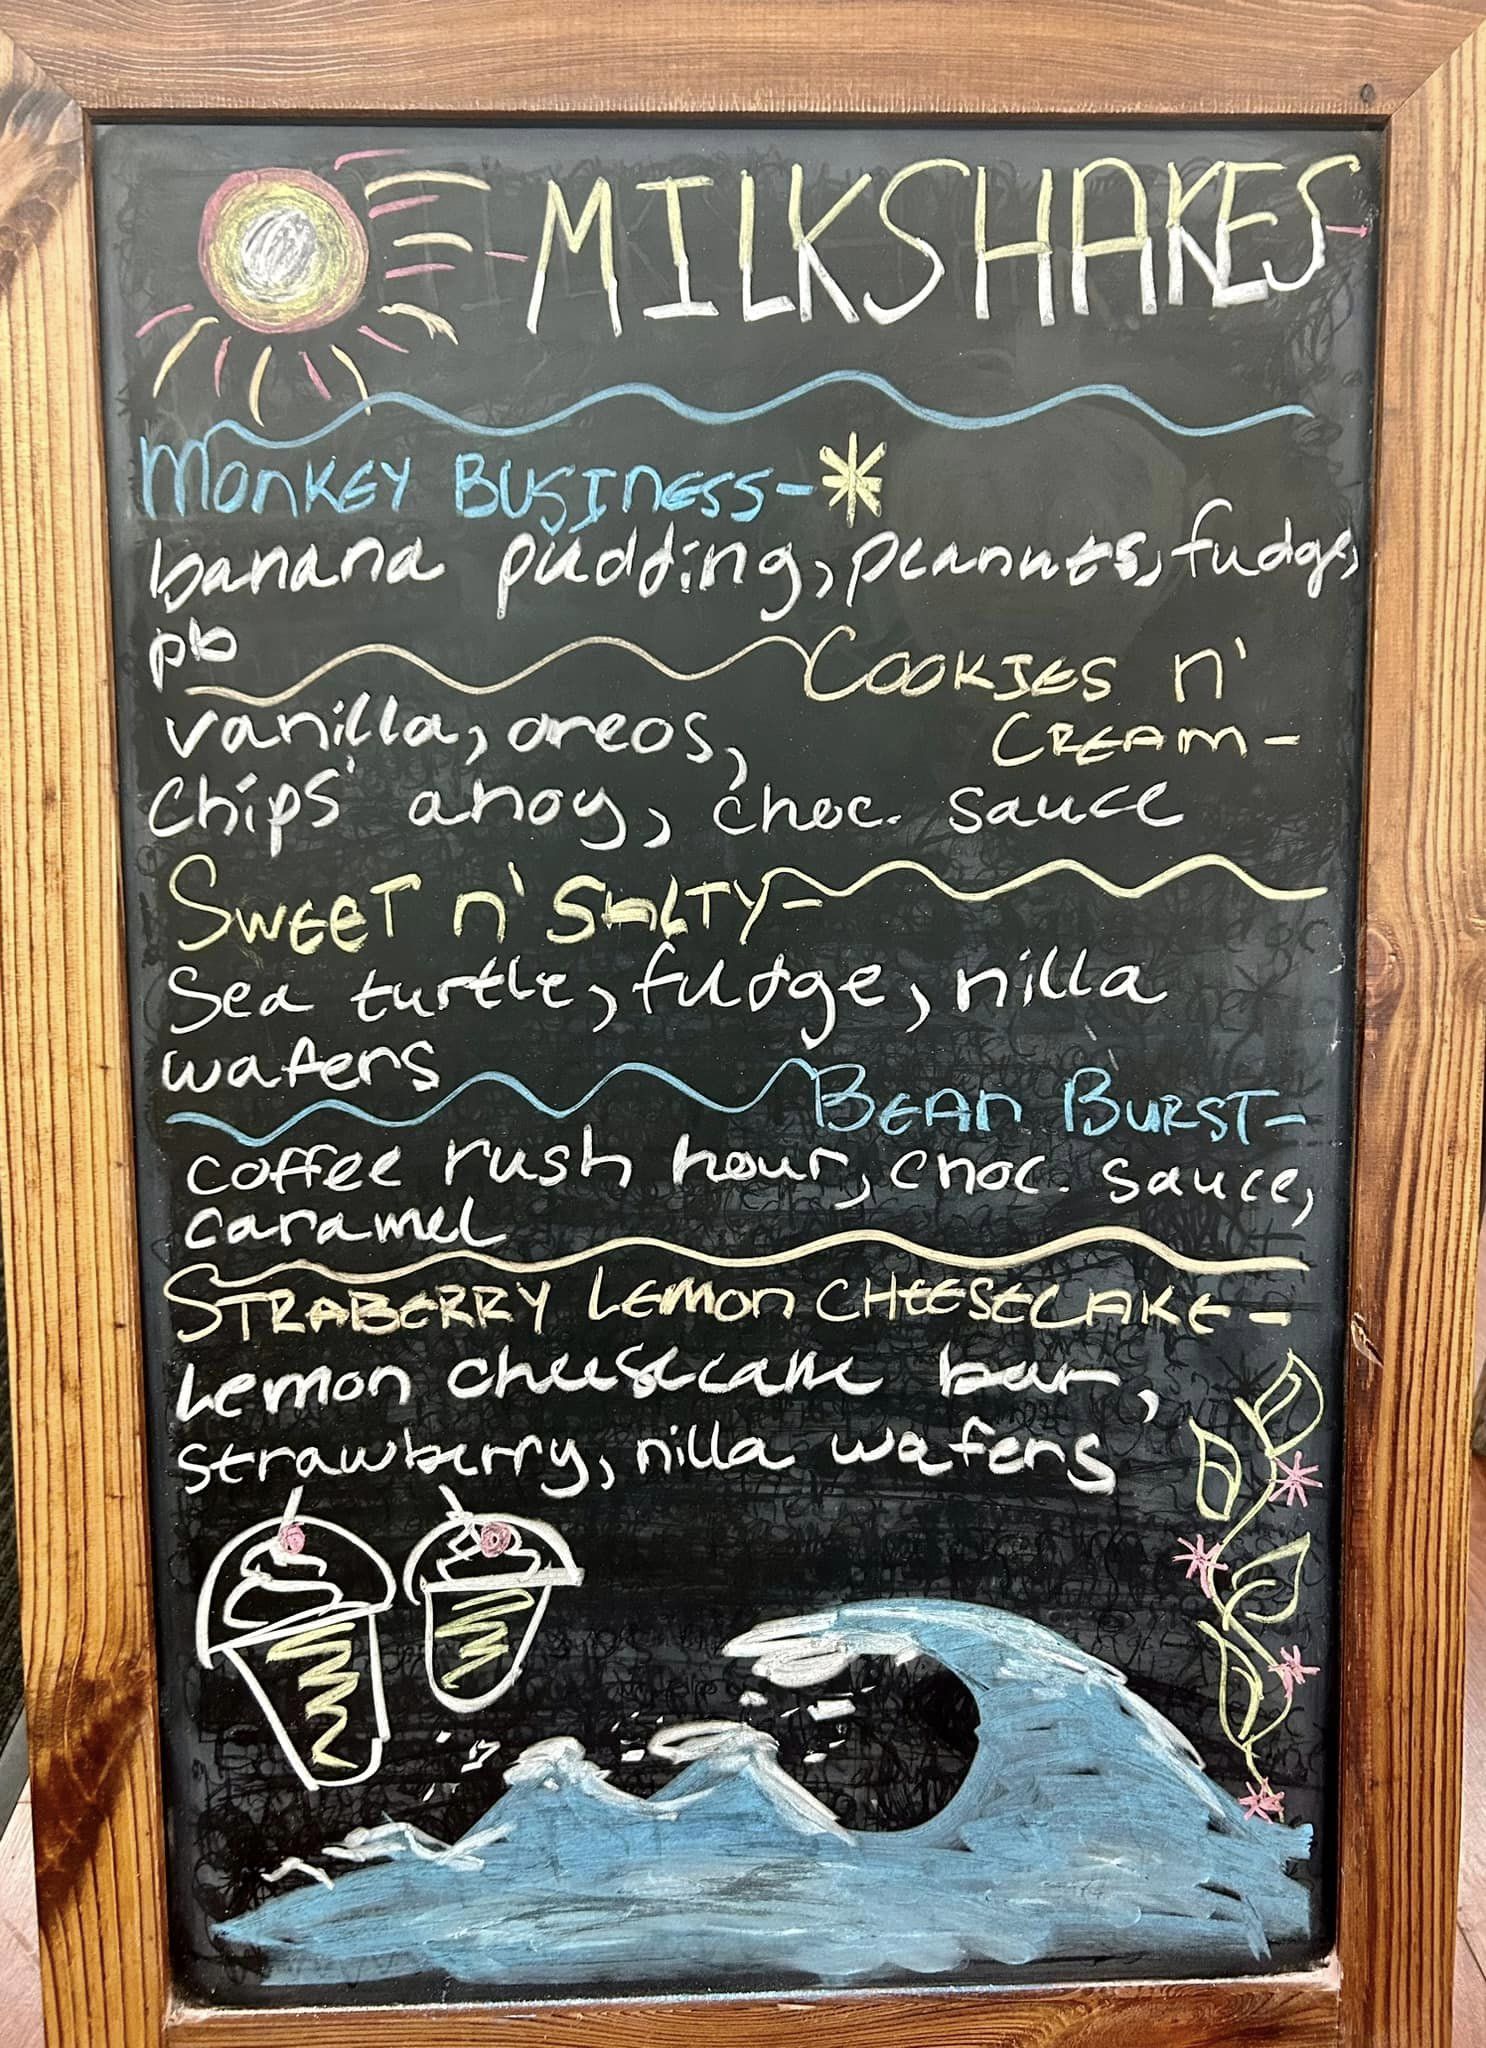 MILKSHAKES
MONKEY BUSINESS- *
banana pudding, peanuts, fudge,
pb
COOKIES n'
CREAM-
vanilla, oreos,
Chips ahoy, choc. sauce
SWEET n' SALTY-
Sea turtle, fudge, nilla
wafers
BEAN BURST-
coffee rush hour, choc. sauce,
caramel
STRABERRY LEMON CHEESECAKE-
Lemon cheesecake bar,
strawberry, nilla wafers